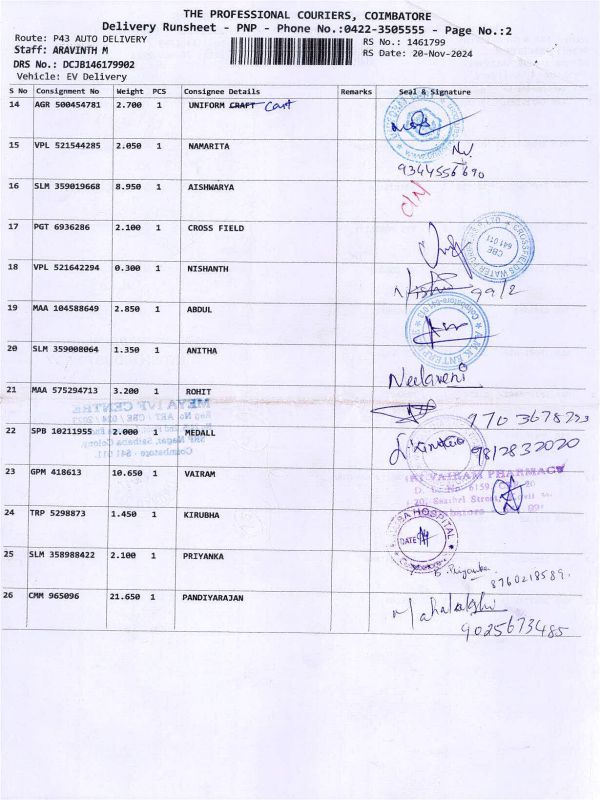 THE PROFESSIONAL COURIERS, COIMBATORE
Delivery Runsheet - PNP - Phone No.:0422-3505555 - Page No.:2
Route: P43 AUTO DELIVERY
RS No.: 1461799
Staff: ARAVINTH M
RS Date: 20-Nov-2024
DRS No.: DCJB146179902
Vehicle: EV Delivery
S No Consignment No Weight PCS Consignee Details Remarks Seal & Signature
14 AGR 500454781 2.700 1 UNIFORM CRAFT Cart
15 VPL 521544285 2.050 1 NAMARITA
9344556690
16 SLM 359019668 8.950 1 AISHWARYA
17 PGT 6936286 2.100 1 CROSS FIELD
CBE
641 011
18 VPL 521642294 0.300 1 NISHANTH
99/2
19 MAA 104588649 2.850 1 ABDUL
20 SLM 359008064 1.350 1 ANITHA
Neelaveni
21 MAA 575294713 3.200 1 ROHIT
MEYA IVF CENTRE
22 SPB 10211955 2.000 1 MEDALL
9812832020
Coimbatore - 641 011
23 GPM 418613 10.650 1 VAIRAM
VAIRAM PHARMACY
24 TRP 5298873 1.450 1 KIRUBHA
HOSPITAL
DATE
25 SLM 358988422 2.100 1 PRIYANKA
B. Priyanka
8760218589.
26 CMM 965096 21.650 1 PANDIYARAJAN
Mahalakshi
9025673485